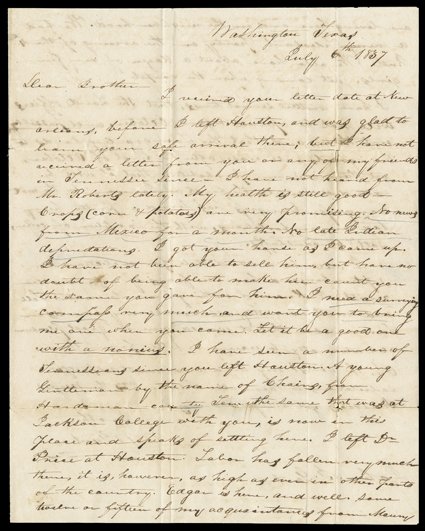 Washington Texas
July 6th 1837
Dear Brother
I recieved your letter date at New
orleans, before I left Houston, and was glad to
learn your safe arrival there; but I have not
recieved a letter from you or any of my friends
in Tennessee since. I have not heard from
Mr. Roberts lately. My health is still good
Crops (corn & potatoes) are very promising. No news
from Mexico for a month. No late Indian
depredations. I got your horse as I came up.
I have not been able to sell him, but have no
doubt of being able to make him count you
the same you gave for him. I need a surveying
compass very much and want you to bring
me one when you come. Let it be a good one
with a nonius. I have seen a number of
Tennesseans since you left Houston. A young
Gentleman by the name of Chairs, from
Hardeman county Tenn. the same that was at
Jackson College with you, is now in this
place and speaks of settling here. I left Dr
Price at Houston. Labor has fallen very much
there, it is, however, as high as ever in other parts
of the country. Edgar is here, and well. some
twelve or fifteen of my acquaintances from Maury